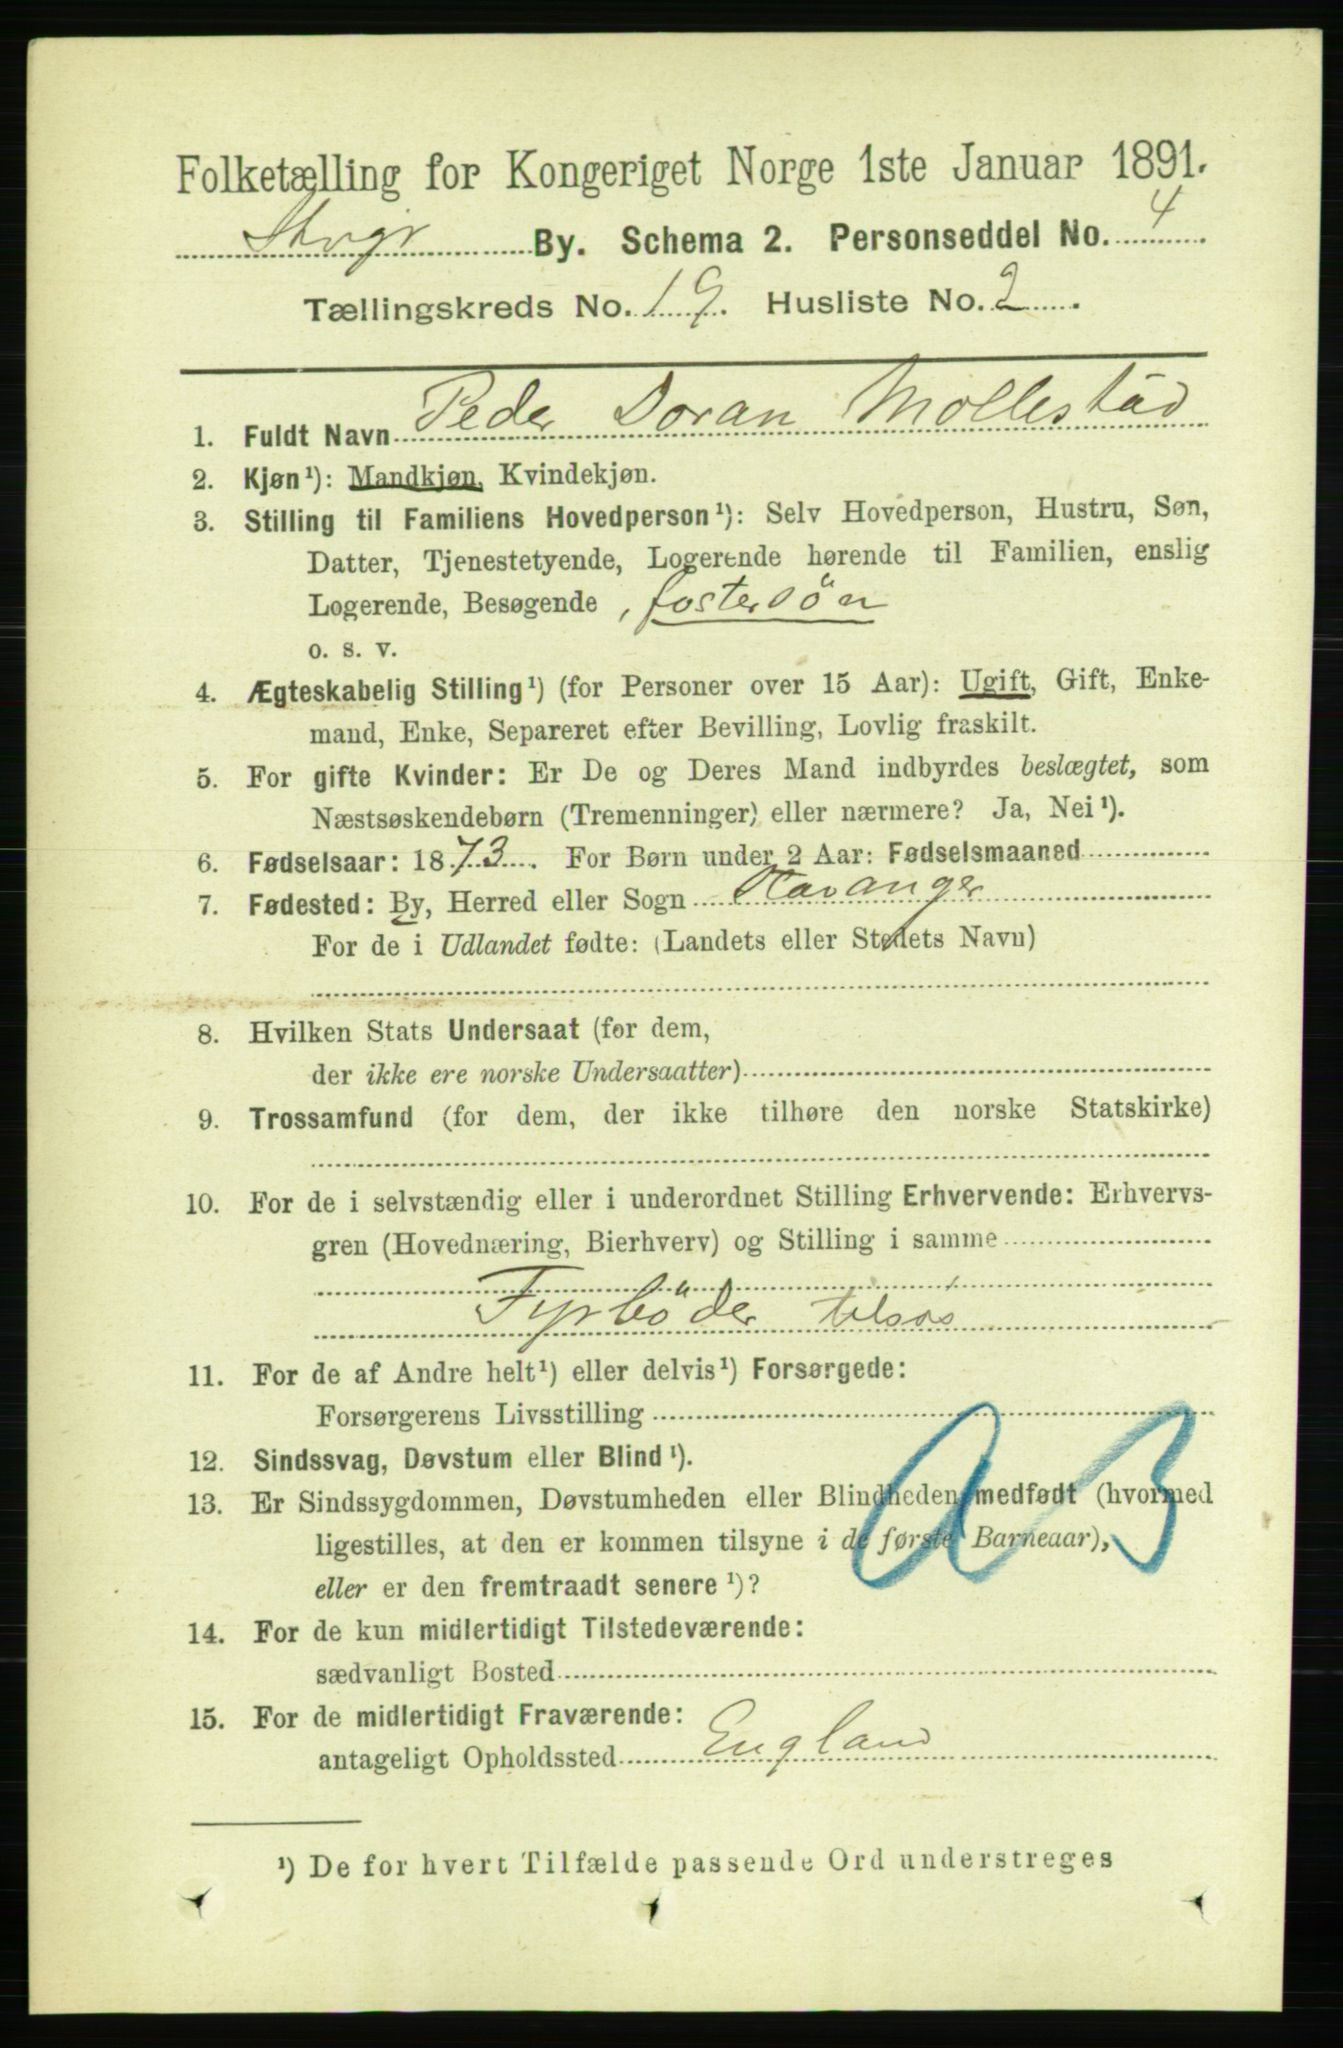 Folketælling for Kongeriget Norge 1ste Januar 1891.
Stvgr By. Schema 2. Personseddel No. 4
Tællingskreds No. 19. Husliste No. 2.
1. Fuldt Navn Peder Doran Mollestad
2. Kjøn¹): Mandkjøn, Kvindekjøn.
3. Stilling til Familiens Hovedperson¹): Selv Hovedperson, Hustru, Søn,
Datter, Tjenestetyende, Logerende hørende til Familien, enslig
Logerende, Besøgende, fostersön
o. s. v.
4. Ægteskabelig Stilling¹) (for Personer over 15 Aar): Ugift, Gift, Enke-
mand, Enke, Separeret efter Bevilling, Lovlig fraskilt.
5. For gifte Kvinder: Er De og Deres Mand indbyrdes beslægtet, som
Næstsøskendebørn (Tremenninger) eller nærmere? Ja, Nei¹).
6. Fødselsaar: 1873. For Børn under 2 Aar: Fødselsmaaned
7. Fødested: By, Herred eller Sogn Stavanger
For de i Udlandet fødte: (Landets eller Stedets Navn)
8. Hvilken Stats Undersaat (for dem,
der ikke ere norske Undersaatter)
9. Trossamfund (for dem, der ikke tilhøre den norske Statskirke)
10. For de i selvstændig eller i underordnet Stilling Erhvervende: Erhvervs-
gren (Hovednæring, Bierhverv) og Stilling i samme
Fyrböder tilsøs
11. For de af Andre helt¹) eller delvis¹) Forsørgede:
Forsørgerens Livsstilling
12. Sindssvag, Døvstum eller Blind¹).
13. Er Sindssygdommen, Døvstumheden eller Blindheden medfødt (hvormed
ligestilles, at den er kommen tilsyne i de første Barneaar),
eller er den fremtraadt senere¹)?
14. For de kun midlertidigt Tilstedeværende:
sædvanligt Bosted
15. For de midlertidigt Fraværende:
antageligt Opholdssted England
¹) De for hvert Tilfælde passende Ord understreges